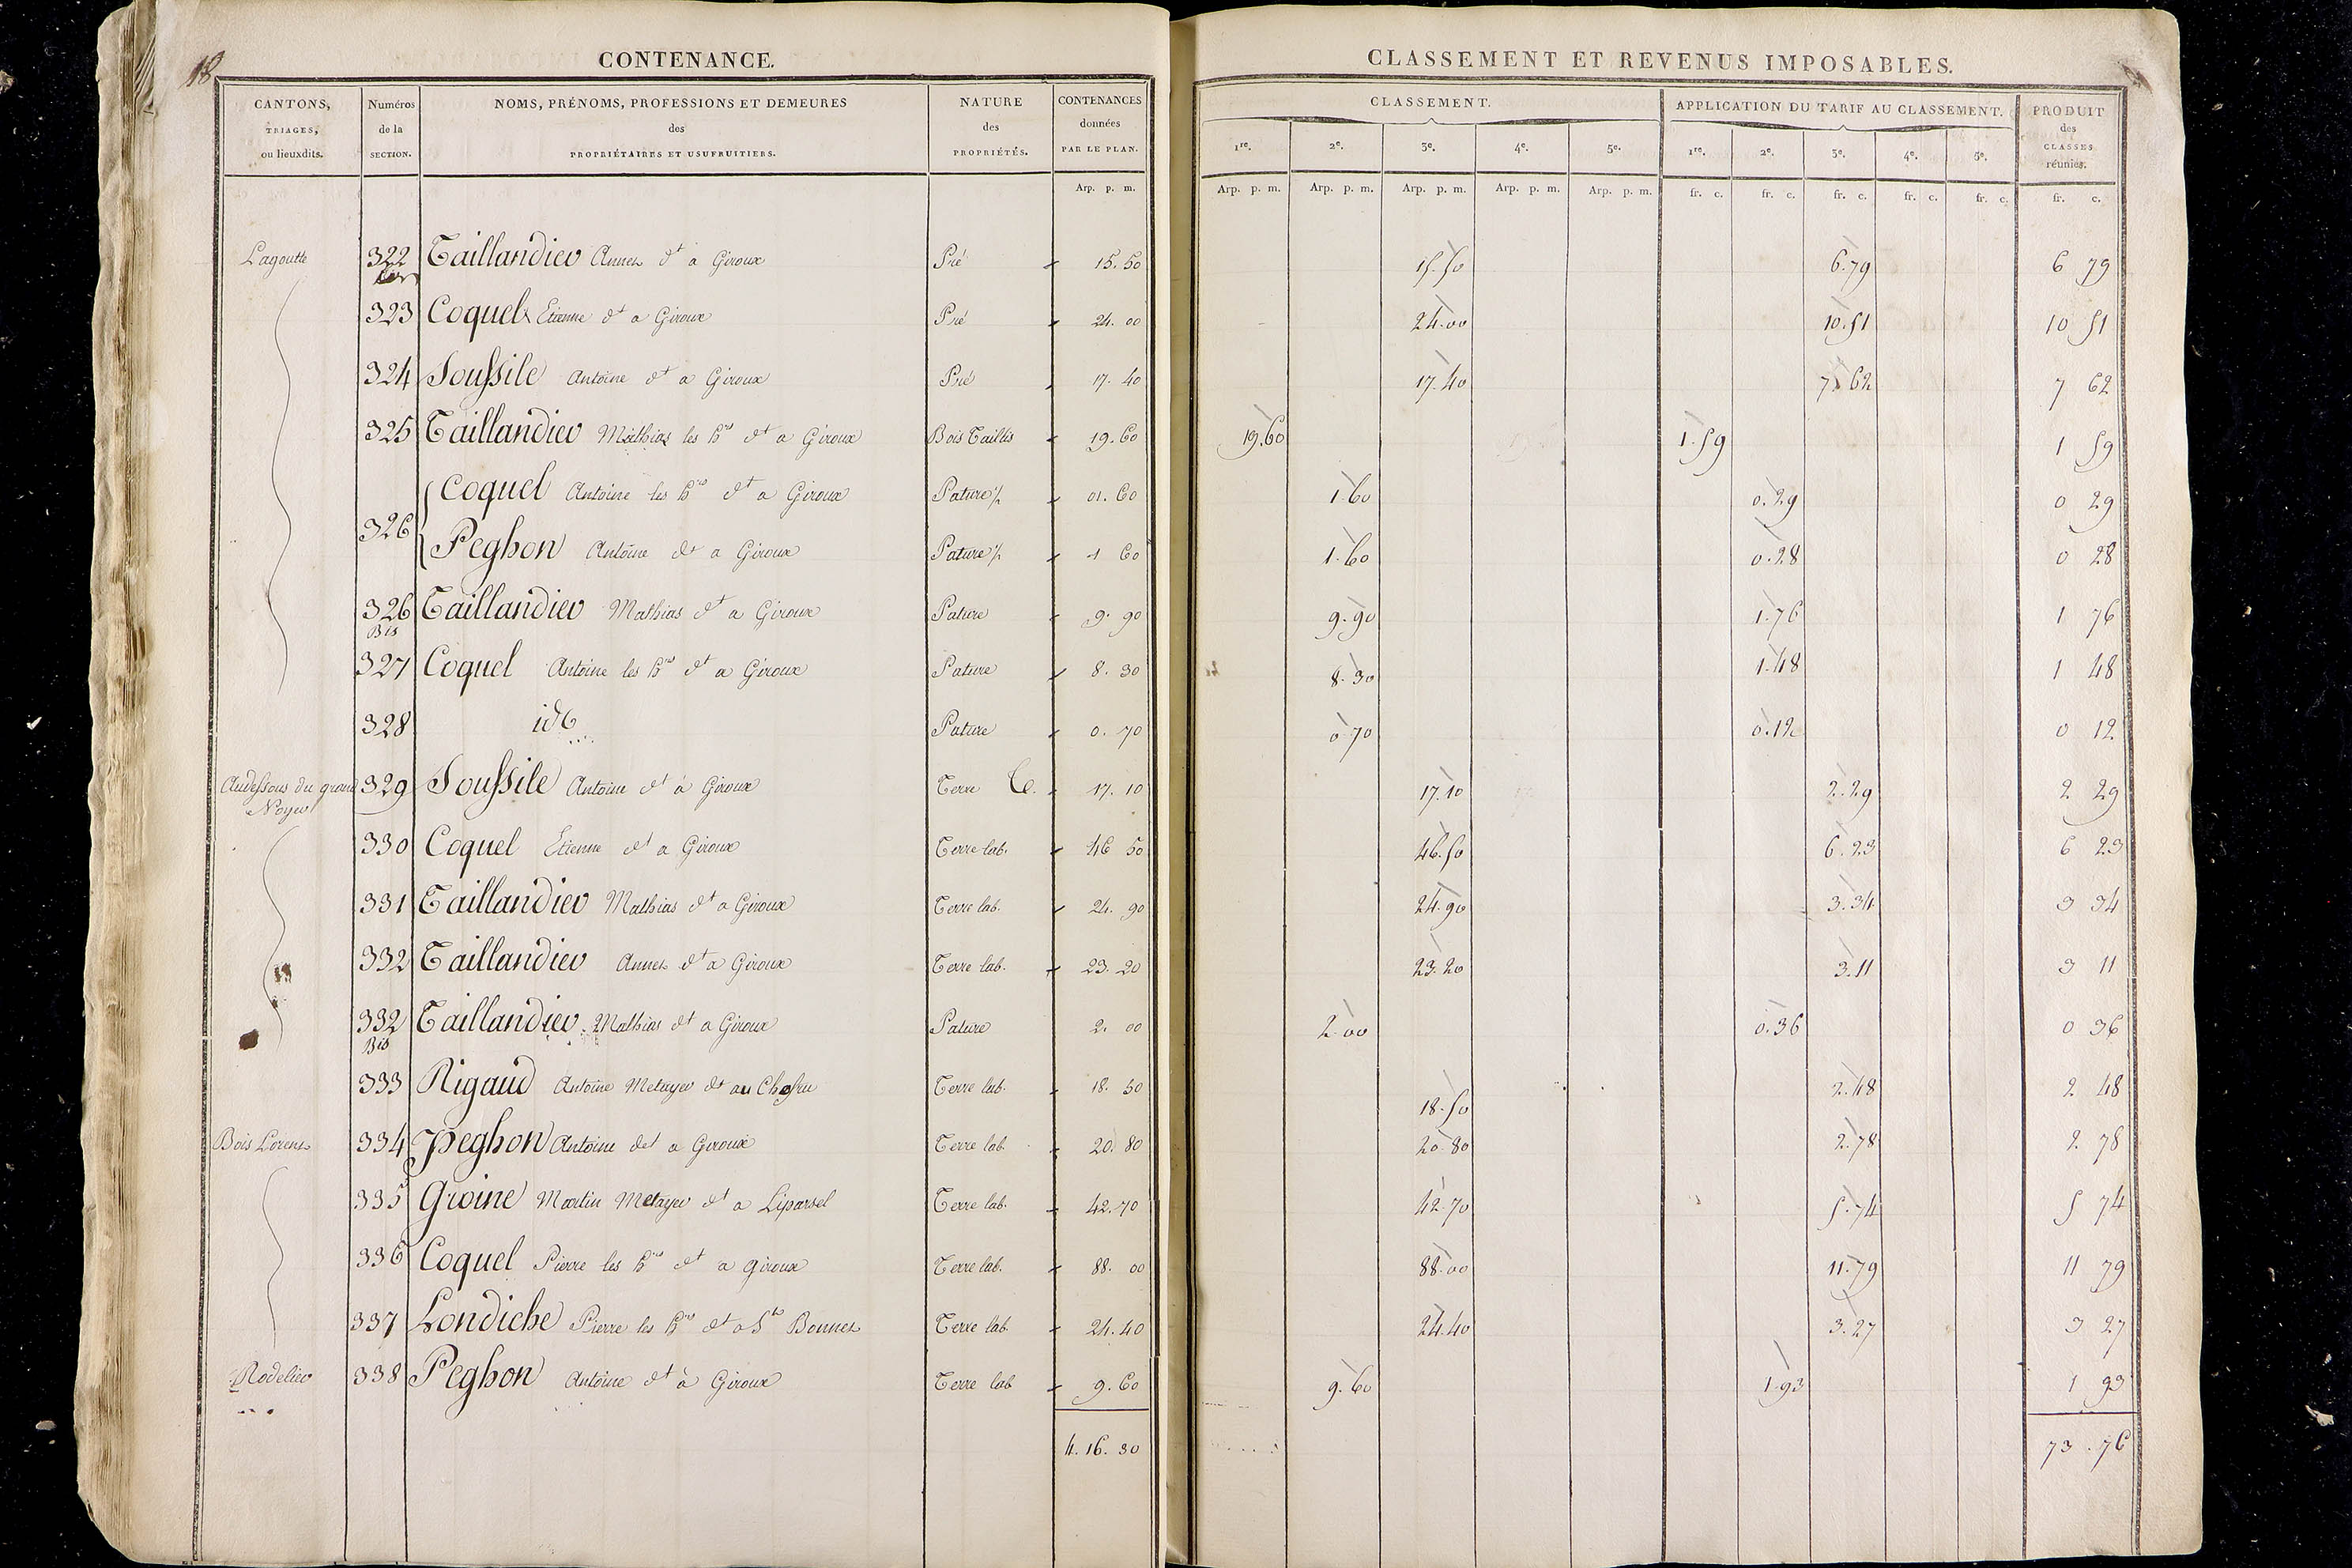 18
CONTENANCE.
CANTONS, TRIAGES, ou lieuxdits. Numéros de la SECTION. NOMS, PRÉNOMS, PROFESSIONS ET DEMEURES des PROPRIÉTAIRES ET USUFRUITIERS. NATURE des PROPRIÉTÉS. CONTENANCES données PAR LE PLAN.
Arp. p. m.
CLASSEMENT ET REVENUS IMPOSABLES.
CLASSEMENT. APPLICATION DU TARIF AU CLASSEMENT. PRODUIT des CLASSES réunies.
1re. 2e. 3e. 4e. 5e. 1re. 2e. 3e. 4e. 5e.
Arp. p. m. Arp. p. m. Arp. p. m. Arp. p. m. Arp. p. m. fr. c. fr. c. fr. c. fr. c. fr. c. fr. c.
Lagoutte 322 Taillandier Annet dt a Giroux Pré 15. 50 15.50 6.79 6 79
323 Coquel Etienne dt a Giroux Pré 24. 00 24.00 10.51 10 51
324 Soussile Antoine dt a Giroux Pré 17. 40 17.40 7.62 7 62
325 Taillandier Mathias les hrs dt a Giroux Bois Taillis 19. 60 19.60 1.59 1 59
Coquel Antoine les hrs dt a Giroux Pature ½ 01. 60 1.60 0.29 0 29
326
Peghon Antoine dt a Giroux Pature ½ 1 60 1.60 0.28 0 28
326 Bis Taillandier Mathias dt a Giroux Pature 9. 90 9.90 1.76 1 76
327 Coquel Antoine les hrs dt a Giroux Pature 8. 30 8.30 1.48 1 48
328 id Pature 0. 70 0.70 0.12 0 12
Audessous du grand Noyer 329 Soussile Antoine dt à Giroux Terre 17. 10 17.10 2.29 2 29
330 Coquel Etienne dt a Giroux Terre lab. 46 50 46.50 6.23 6 23
331 Taillandier Mathias dt a Giroux Terre lab. 24. 90 24.90 3.34 3 34
332 Taillandier Annet dt a Giroux Terre lab. 23. 20 23.20 3.11 3 11
332 Bis Taillandier Mathias dt a Giroux Pature 2. 00 2.00 0.36 0 36
333 Rigaud Antoine Metayer dt au Terre lab. 18. 50 18.50 2.48 2 48
Bois Lorent 334 Peghon Antoine det a Giroux Terre lab 20. 80 20.80 2.78 2 78
335 Groine Martin Metayer dt a Liparsel Terre lab. 42.70 42.70 5.74 5 74
336 Coquel Pierre les hrs dt a giroux Terre lab. 88. 00 88.00 11.79 11 79
337 Londiche Pierre les hrs dt a St Bonnet Terre lab. 24.40 24.40 3.27 3 27
Rodelier 338 Peghon Antoine dt à Giroux Terre lab 9.60 9.60 1.93 1 93
4. 16. 30 73.76